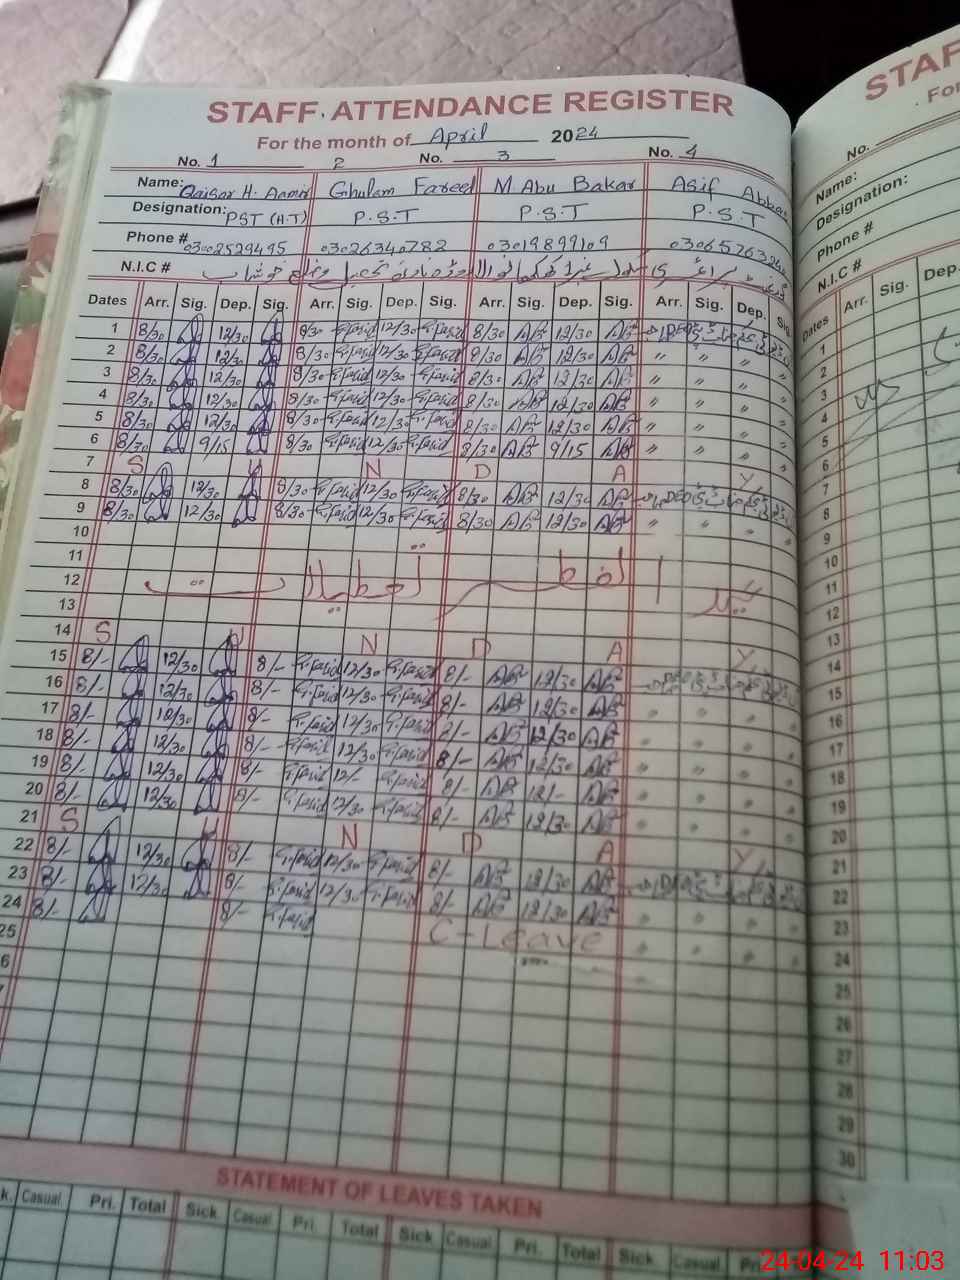 STAFF ATTENDANCE REGISTER
For the month of April 2024
No. 1 2 No. 3 No. 4
Name: Qaisar H. Aamir Ghulam Fareed M Abu Bakar Asif Abbas
Designation: PST (H.T) P.S.T P.S.T P.S.T
Phone # 03002529495 03026340782 03019899109
N.I.C #
Dates Arr. Sig. Dep. Sig. Arr. Sig. Dep. Sig. Arr. Sig. Dep. Sig. Arr. Sig. Dep. Sig
1 8/30 12/30 8/30 G.farid 12/30 G.farid 8/30 AB 12/30 AB
2 8/30 12/30 8/30 G.farid 12/30 G.farid 8/30 AB 12/30 AB " " " "
3 8/30 12/30 8/30 G.farid 12/30 G.farid 8/30 AB 12/30 AB " " " "
4 8/30 12/30 8/30 G.farid 12/30 G.farid 8/30 AB 12/30 AB " " " "
5 8/30 12/30 8/30 G.farid 12/30 G.farid 8/30 AB 12/30 AB " " " "
6 8/30 9/15 8/30 G.farid 12/30 G.farid 8/30 AB 9/15 AB " " " "
7 S U N D A Y
8 8/30 12/30 8/30 G.farid 12/30 G.farid 8/30 AB 12/30 AB
9 8/30 12/30 8/30 G.farid 12/30 G.farid 8/30 AB 12/30 AB " " " "
10
11
12 عید الفطر تعطیلات
13
14 S U N D A Y
15 8/- 12/30 8/- G.farid 12/30 G.farid 8/- AB 12/30 AB
16 8/- 12/30 8/- G.farid 12/30 G.farid 8/- AB 12/30 AB " " " "
17 8/- 12/30 8/- G.farid 12/30 G.farid 8/- AB 12/30 AB " " " "
18 8/- 12/30 8/- G.farid 12/30 G.farid 8/- AB 12/30 AB " " " "
19 8/- 12/30 8/- G.farid 12/- G.farid 8/- AB 12/- AB " " " "
20 8/- 12/30 8/- G.farid 12/30 G.farid 8/- AB 12/30 AB " " " "
21 S U N D A Y
22 8/- 12/30 8/- G.farid 12/30 G.farid 8/- AB 12/30 AB
23 8/- 12/30 8/- G.farid 12/30 G.farid 8/- AB 12/30 AB " " " "
24 8/- 8/- G.farid C-Leave " " " "
25
6
7
STATEMENT OF LEAVES TAKEN
k. Casual Pri. Total Sick Casual Pri. Total Sick Casual Pri. Total Sick Casual Pri
STAF
For
No.
Name:
Designation:
Phone #
N.I.C #
Dates Arr. Sig. Dep.
1
2
3
4
5
6
7
8
9
10
11
12
13
14
15
16
17
18
19
20
21
22
23
24
25
26
27
28
29
30
24-04-24 11:03